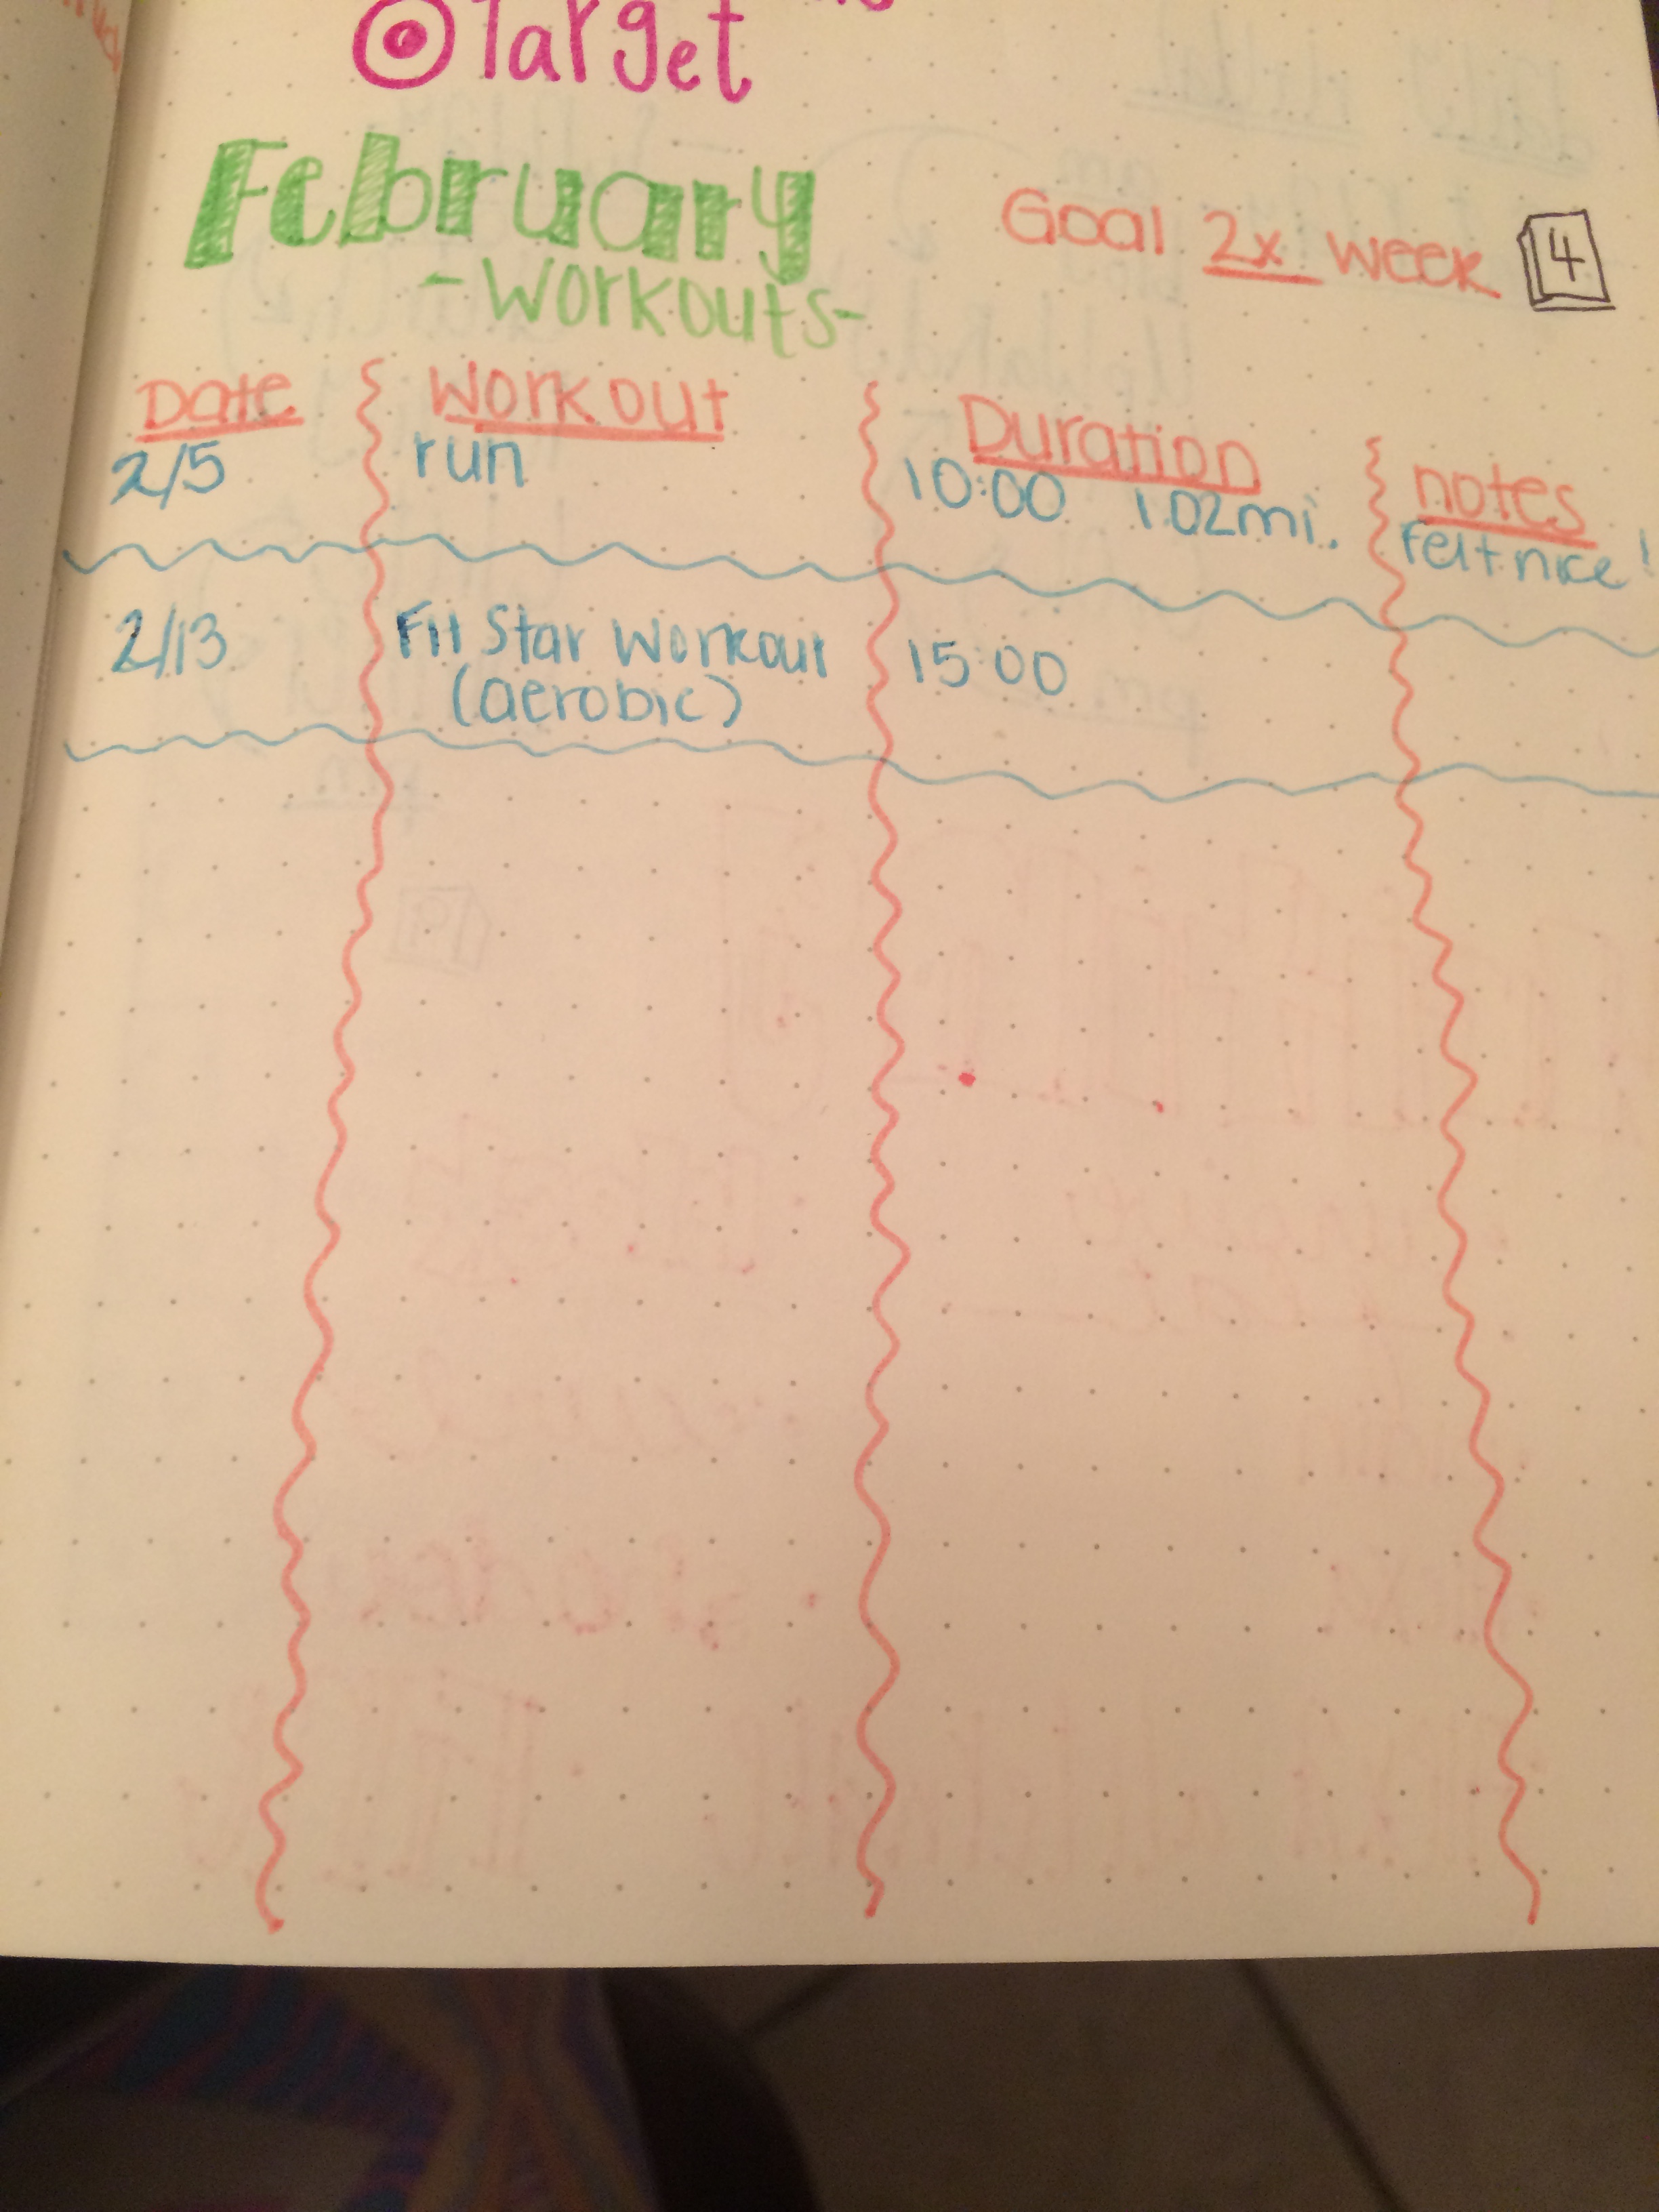 Target
February
-Workouts-
Goal 2x week
4
Date
Workout
Duration
notes
2/5
run
10:00 1.02mi.
Felt nice!
2/13
Fit Star Workout
(aerobic)
15:00